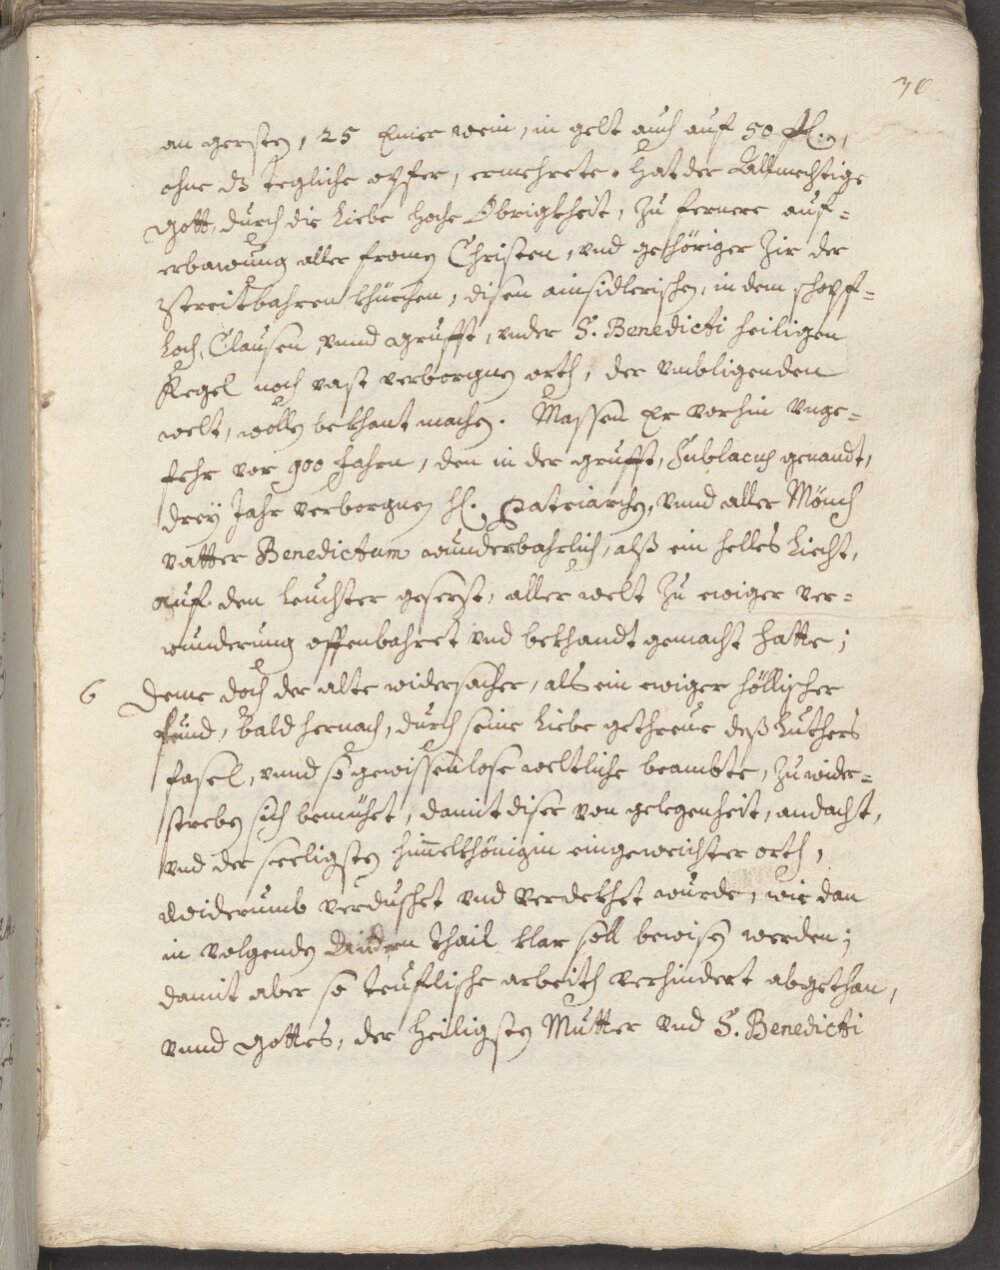 30
an gersten, 25 Emer wein, in gelt auch auf 50 fl.,
ohne dz tegliche opfer, ermehrete. Hat der Allmechtige
Gott, durch die Liebe Hoche Obrigkheit, zu fernere auf=
erbawung aller fromen Christen, vnd gehöriger Zir der
streitbahren khürchen, disen ainsidlerischen, in dem schopf=
Loch, Clausen, vnnd Grufft, vnder S. Benedicti heiligen
Regel noch vast verborgnen orth, der vmbligenden
welt, wollen bekhant machen. Massen Er vorhin vnge=
fehr vor 900 Jahrn, den in der grufft, Sublacus genandt,
drey Jahr verborgnen hl. Patriarchen, vnnd aller Mönch
vatter Benedictum wunderbahrlich, alß ein helles Liecht,
auf den leuchter gesezt, aller welt zu ewiger ver=
wunderung offenbahret vnd bekhandt gemacht hatte;
6 Deme doch der alte widersacher, als ein ewiger höllischer
feind, bald hernach, durch seine Liebe gethreue deß Luthers
fasel, vnnd so gewissenlose weltliche beambte, zu wider=
streben sich bemühet, damit diser von gelegenheit, andacht,
vnd der seeligsten himelkhönigin eingeweichter orth,
widerumb verdushet vnd verdekhet wurde, wie dan
in volgenden Andern thail klar soll bewisen werden;
damit aber so teuflische arbeith verhindert abgethan,
vnnd Gottes, der Heiligsten Mutter vnd S. Benedicti